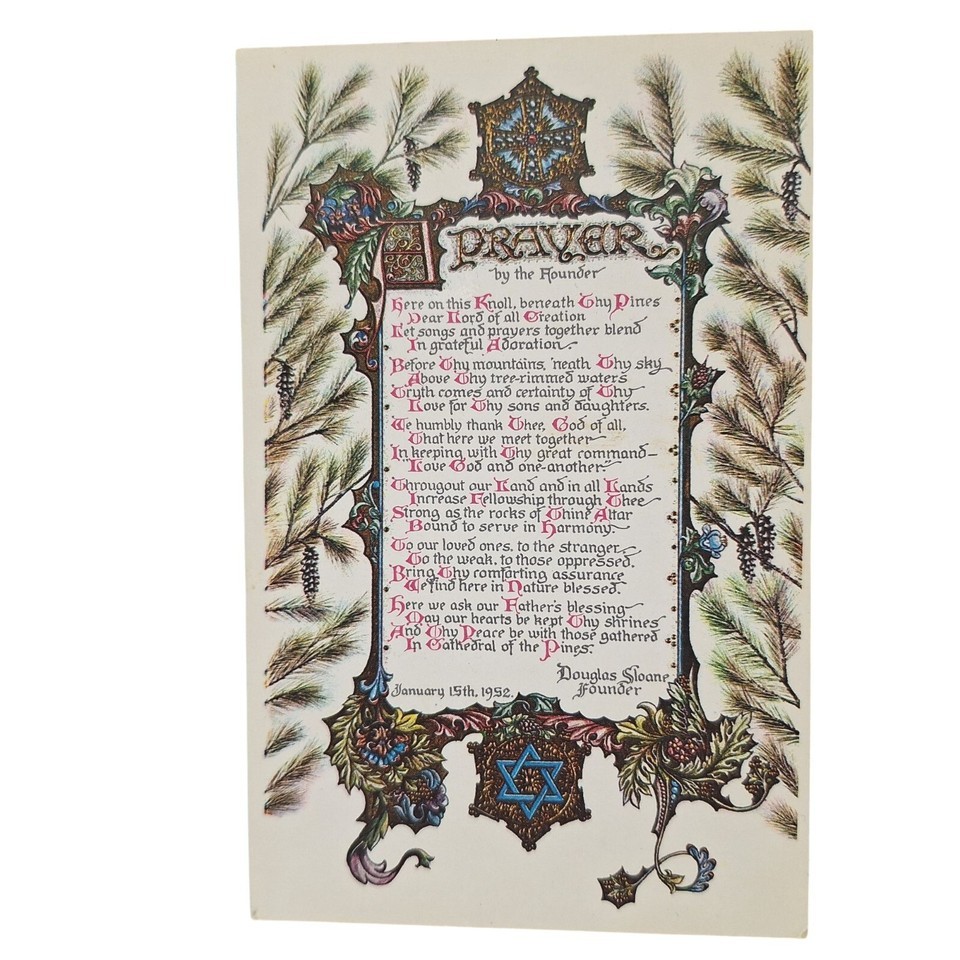 A PRAYER
by the Founder
Here on this Knoll, beneath Thy Pines
Dear Lord of all Creation
Let songs and prayers together blend
In grateful Adoration.
Before Thy mountains, 'neath Thy sky
Above Thy tree-rimmed waters
Truth comes and certainty of Thy
Love for Thy sons and daughters.
We humbly thank Thee, God of all,
That here we meet together
In keeping with Thy great command—
"Love God and one-another."
Througout our Land and in all Lands
Increase Fellowship through Thee
Strong as the rocks of Thine Altar
Bound to serve in Harmony.
To our loved ones, to the stranger,
To the weak, to those oppressed,
Bring Thy comforting assurance
We find here in Nature blessed.
Here we ask our Father's blessing
May our hearts be kept Thy shrines
And Thy Peace be with those gathered
In Cathedral of the Pines.
Douglas Sloane
January 15th, 1952. Founder